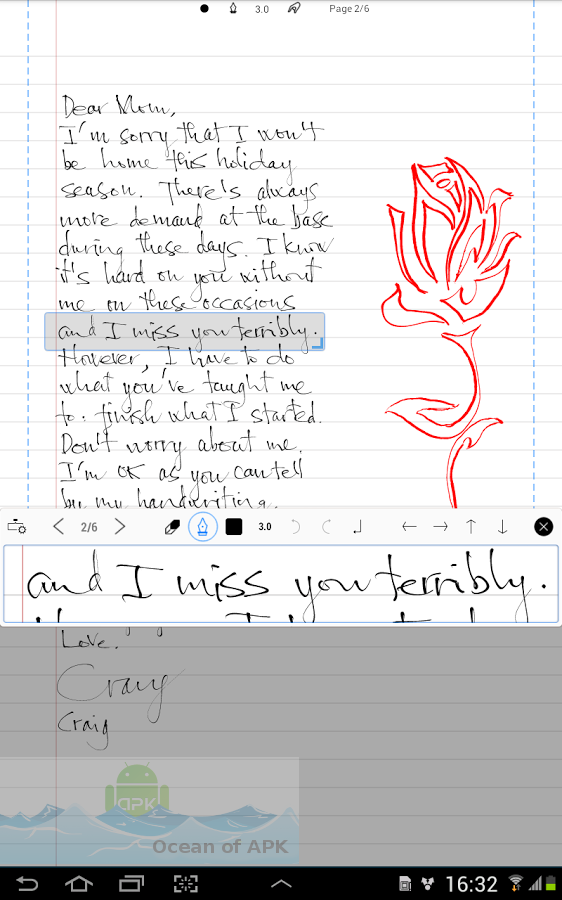 3.0 Page 2/6
Dear Mom,
I'm sorry that I won't
be home this holiday
season. There's always
more demand at the base
during these days. I know
it's hard on you without
me on these occasions
and I miss you terribly.
However, I have to do
what you've taught me
to. finish what I started.
Don't worry about me.
I'm OK as you can tell
by my handwriting.
2/6 3.0
and I miss you terribly.
Love.
Craig
Craig
APK
Ocean of APK
16:32